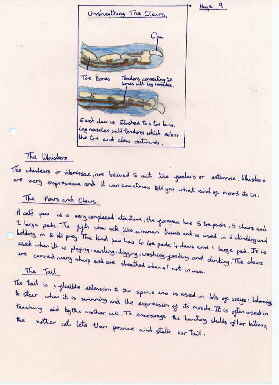 Page 9
Unsheathing The Claws.
Claw
Toe Bones
Tendons connecting toe
bones with leg muscles.
Each claw is attached to a toe bone.
Leg muscles pull tendons which extend
the toe and claw outwards.
The Whiskers
The whiskers or vibrissae, are believed to act like feelers or antennae. Whiskers
are very expressive and it can sometimes tell you what sort of mood its in.
The Paws and Claws
A cats paw is a very complicated structure, the foremost has 5 toe pads, 5 claws and
2 large pads. The fifth claw acts like a human thumb and is used in climbing and
holding on to its prey. The hind paw has 4 toe pads, 4 claws and 1 large pad. It is
used when it is playing, hunting, digging, washing, fighting and climbing. The claws
are curved, very sharp and are sheathed when not in use.
The Tail
The tail is a flexible extension of the spine and is used in lots of ways: balancing
to steer when it is running and the expression of its moods. It is often used in
teaching aid by the mother cat. To encourage the hunting skills of her kittens,
the mother cat lets them pounce and stalk her tail.